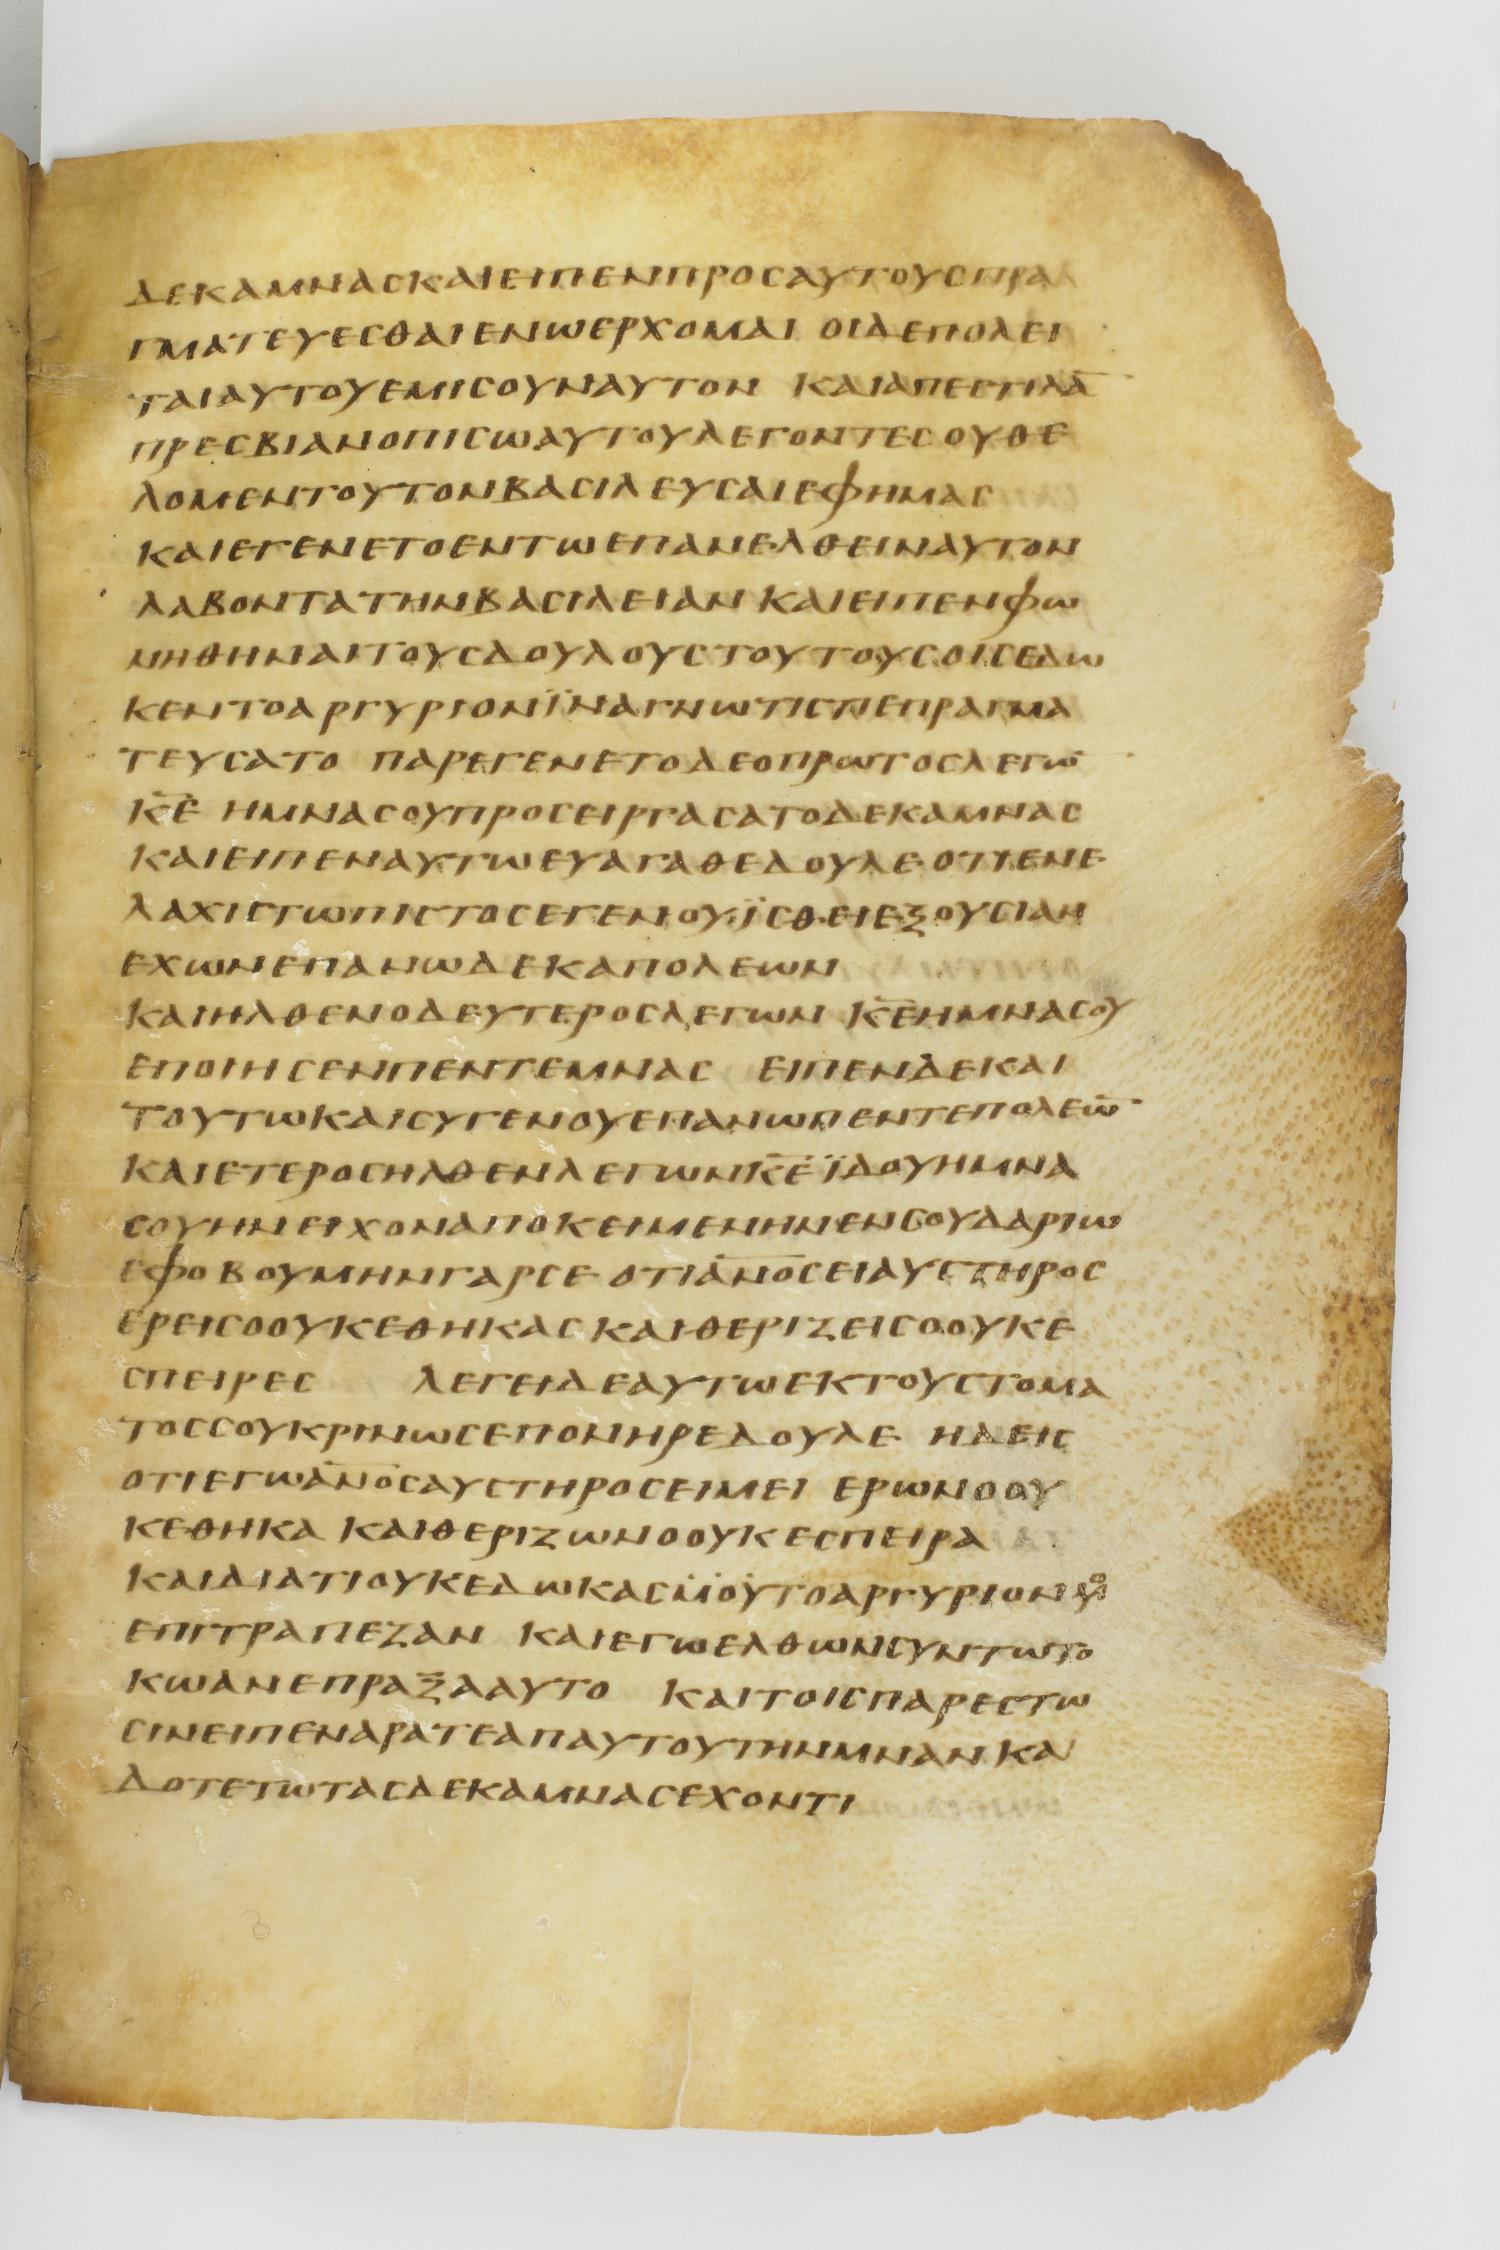 ΔΕΚΑΜΝΑСΚΑΙΕΙΠΕΝΠΡΟСΑΥΤΟΥСΠΡΑ
ΓΜΑΤΕΥΕСΘΑΙΕΝωΕΡΧΟΜΑΙ ΟΙΔΕΠΟΛΕΙ
ΤΑΙΑΥΤΟΥΕΜΙСΟΥΝΑΥΤΟΝ ΚΑΙΑΠΕСΤΙΛΑ̅
ΠΡΕСΒΙΑΝΟΠΙСωΑΥΤΟΥΛΕΓΟΝΤΕСΟΥΘΕ
ΛΟΜΕΝΤΟΥΤΟΝΒΑСΙΛΕΥСΑΙΕΦΗΜΑС
ΚΑΙΕΓΕΝΕΤΟΕΝΤωΕΠΑΝΕΛΘΕΙΝΑΥΤΟΝ
ΛΑΒΟΝΤΑΤΗΝΒΑСΙΛΕΙΑΝ ΚΑΙΕΙΠΕΝΦω
ΝΗΘΗΝΑΙΤΟΥСΔΟΥΛΟΥСΤΟΥΤΟΥСΟΙСΕΔω
ΚΕΝΤΟΑΡΓΥΡΙΟΝΪΝΑΓΝωΤΙСΤΙΕΠΡΑΓΜΑ
ΤΕΥСΑΤΟ ΠΑΡΕΓΕΝΕΤΟΔΕΟΠΡωΤΟСΛΕΓω̅
Κ̅Ε̅ ΗΜΝΑСΟΥΠΡΟСΕΙΡΓΑСΑΤΟΔΕΚΑΜΝΑС
ΚΑΙΕΙΠΕΝΑΥΤωΕΥΑΓΑΘΕΔΟΥΛΕΟΤΙΕΝΕ
ΛΑΧΙСΤωΠΙСΤΟСΕΓΕΝΟΥΪСΘΕΙΕΞΟΥСΙΑΝ
ΕΧωΝΕΠΑΝωΔΕΚΑΠΟΛΕωΝ
ΚΑΙΗΛΘΕΝΟΔΕΥΤΕΡΟСΛΕΓωΝ Κ̅Ε̅ΗΜΝΑСΟΥ
ΕΠΟΙΗСΕΝΠΕΝΤΕΜΝΑС ΕΙΠΕΝΔΕΚΑΙ
ΤΟΥΤωΚΑΙСΥΓΕΝΟΥΕΠΑΝωΠΕΝΤΕΠΟΛΕω̅
ΚΑΙΕΤΕΡΟСΗΛΘΕΝΛΕΓωΝΚ̅Ε̅ΪΔΟΥΗΜΝΑ
СΟΥΗΝΕΙΧΟΝΑΠΟΚΕΙΜΕΝΗΝΕΝСΟΥΔΑΡΙω
ΕΦΟΒΟΥΜΗΝΓΑΡСΕ ΟΤΙΑ̅Ν̅Ο̅С̅ΕΙΑΥСΤΗΡΟС
ΕΡΕΙСΟΟΥΚΕΘΗΚΑСΚΑΙΘΕΡΙΖΕΙСΟΟΥΚΕ
СΠΕΙΡΕС ΛΕΓΕΙΔΕΑΥΤωΕΚΤΟΥСΤΟΜΑ
ΤΟССΟΥΚΡΙΝωСΕΠΟΝΗΡΕΔΟΥΛΕ ΗΔΕΙС
ΟΤΙΕΓωΑ̅Ν̅Ο̅С̅ΑΥСΤΗΡΟСΕΙΜΕΙ ΕΡωΝΟΟΥ
ΚΕΘΗΚΑ ΚΑΙΘΕΡΙΖωΝΟΟΥΚΕСΠΕΙΡΑ
ΚΑΙΔΙΑΤΙΟΥΚΕΔωΚΑСΜΟΥΤΟΑΡΓΥΡΙΟΝ
ΕΠΙΤΡΑΠΕΖΑΝ ΚΑΙΕΓωΕΛΘωΝСΥΝΤωΤΟ
ΚωΑΝΕΠΡΑΞΑΑΥΤΟ ΚΑΙΤΟΙСΠΑΡΕСΤω
СΙΝΕΙΠΕΝΑΡΑΤΕΑΠΑΥΤΟΥΤΗΝΜΝΑΝΚΑΙ
ΔΟΤΕΤωΤΑСΔΕΚΑΜΝΑСΕΧΟΝΤΙ